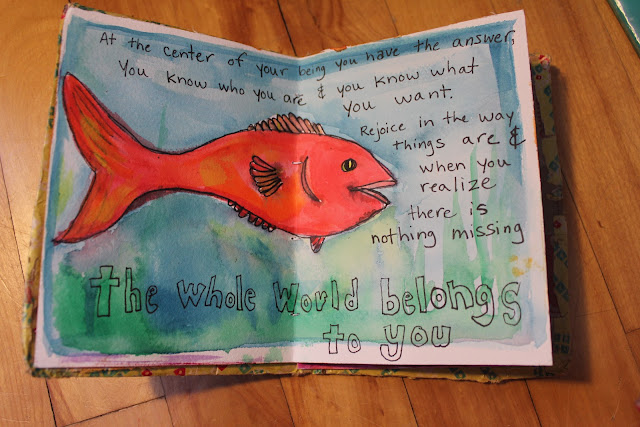 At the center of your being you have the answer,
You know who you are & you know what
you want.
Rejoice in the way
things are &
when you
realize
there is
nothing missing
the whole world belongs
to you